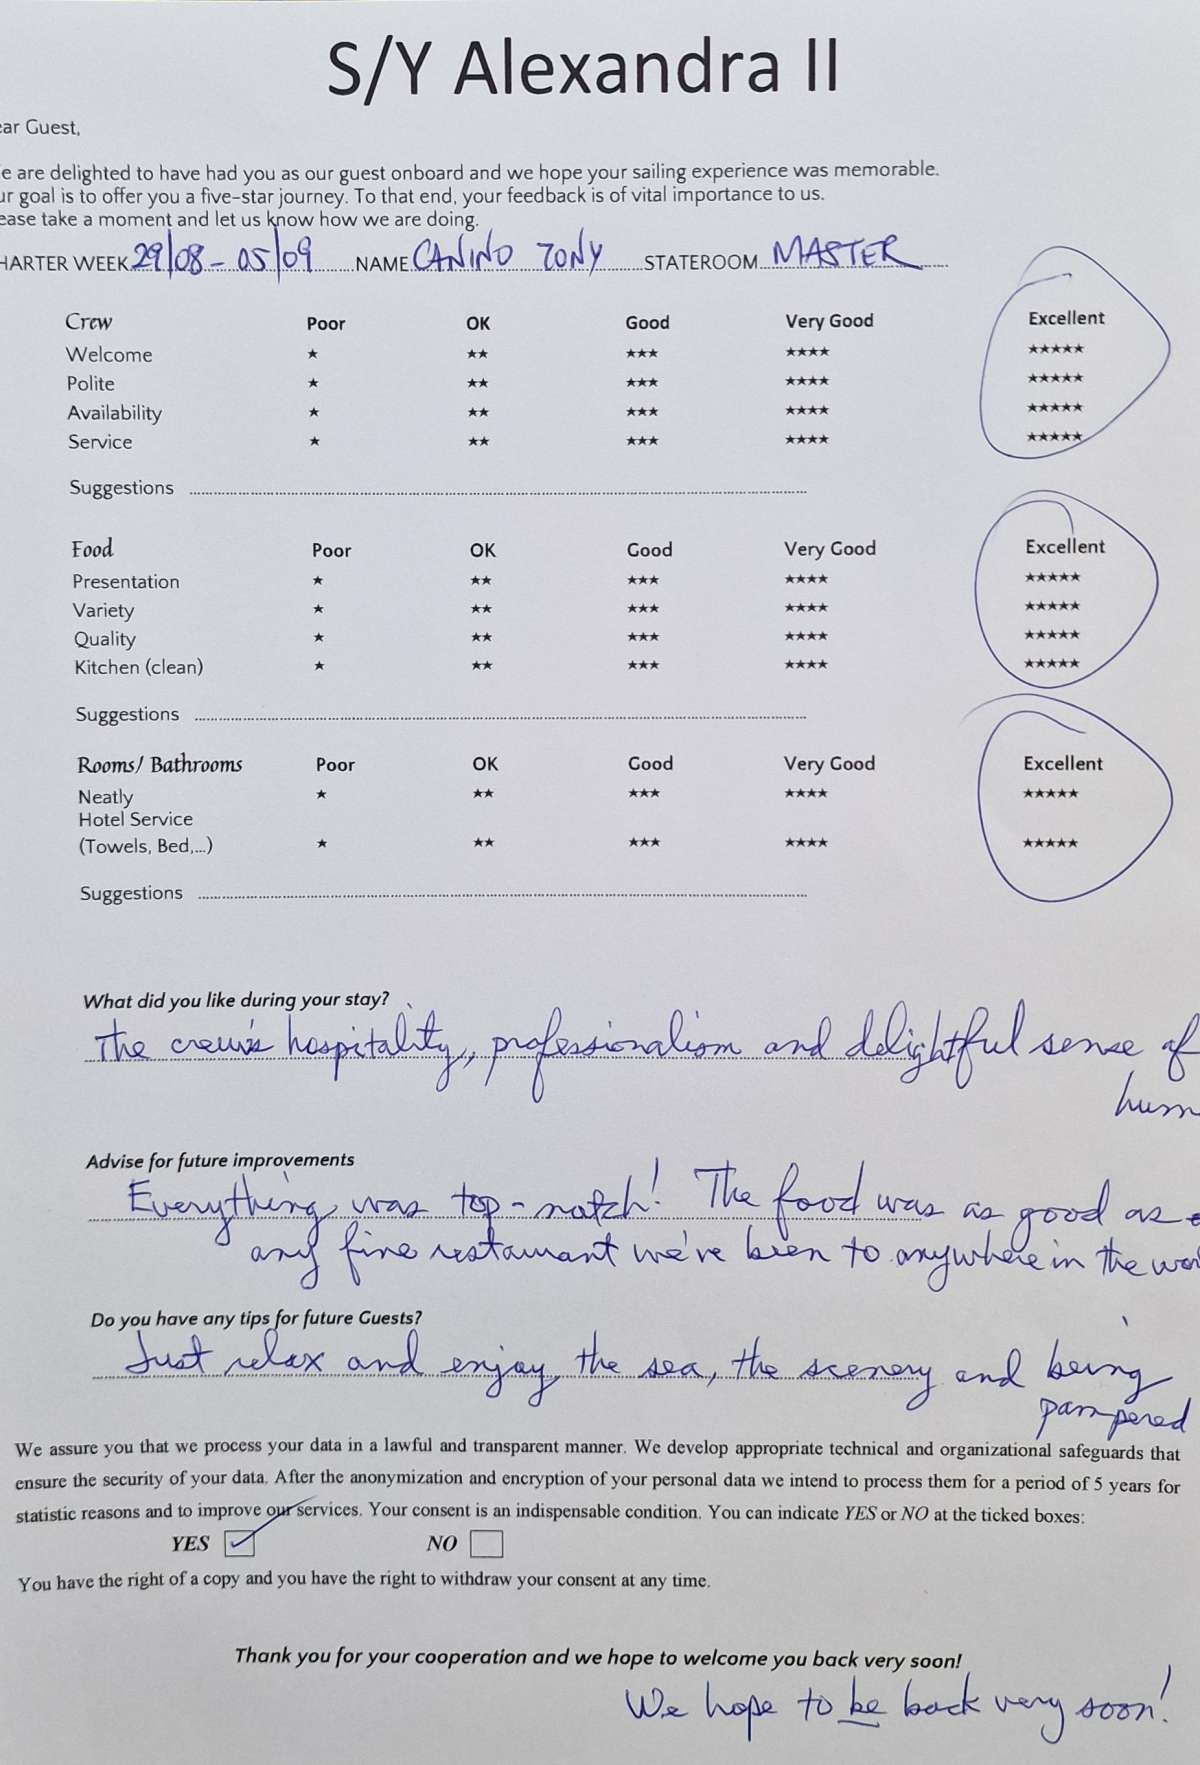 S/Y Alexandra II
ear Guest,
e are delighted to have had you as our guest onboard and we hope your sailing experience was memorable.
ur goal is to offer you a five-star journey. To that end, your feedback is of vital importance to us.
ease take a moment and let us know how we are doing.
HARTER WEEK 29/08 - 05/09 NAME CANINO TONY STATEROOM MASTER
Crew Poor OK Good Very Good Excellent
Welcome ★ ★★ ★★★ ★★★★ ★★★★★
Polite ★ ★★ ★★★ ★★★★ ★★★★★
Availability ★ ★★ ★★★ ★★★★ ★★★★★
Service ★ ★★ ★★★ ★★★★ ★★★★★
Suggestions
Food Poor OK Good Very Good Excellent
Presentation ★ ★★ ★★★ ★★★★ ★★★★★
Variety ★ ★★ ★★★ ★★★★ ★★★★★
Quality ★ ★★ ★★★ ★★★★ ★★★★★
Kitchen (clean) ★ ★★ ★★★ ★★★★ ★★★★★
Suggestions
Rooms/ Bathrooms Poor OK Good Very Good Excellent
Neatly ★ ★★ ★★★ ★★★★ ★★★★★
Hotel Service
(Towels, Bed,...) ★ ★★ ★★★ ★★★★ ★★★★★
Suggestions
What did you like during your stay?
The crew's hospitality, professionalism and delightful sense of
hum
Advise for future improvements
Everything was top-notch! The food was as good as
any fine restaurant we've been to anywhere in the wor
Do you have any tips for future Guests?
Just relax and enjoy the sea, the scenery and being
pampered
We assure you that we process your data in a lawful and transparent manner. We develop appropriate technical and organizational safeguards that
ensure the security of your data. After the anonymization and encryption of your personal data we intend to process them for a period of 5 years for
statistic reasons and to improve our services. Your consent is an indispensable condition. You can indicate YES or NO at the ticked boxes:
YES ☑ NO ☐
You have the right of a copy and you have the right to withdraw your consent at any time.
Thank you for your cooperation and we hope to welcome you back very soon!
We hope to be back very soon!